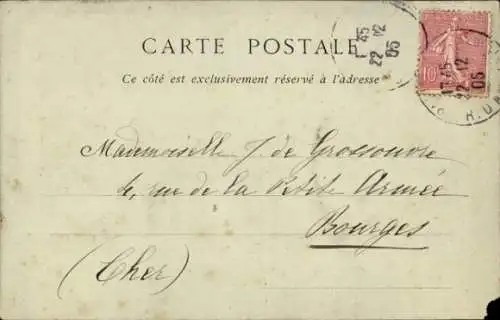 CARTE POSTALE
Ce côté est exclusivement réservé à l'adresse
17 45
22 12
05
10
17 45
22 12
05
Mademoiselle J. de Grossouvre
4, rue de la Petite Armée
Bourges
(Cher)